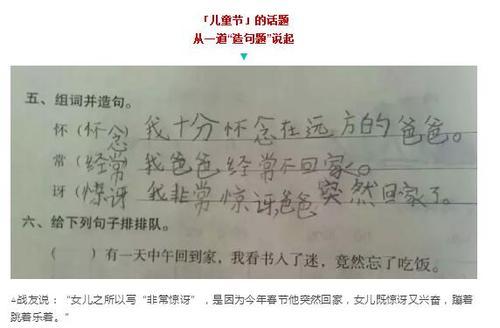 「儿童节」的话题
从一道“造句题”说起
五、组词并造句。
怀(怀念)我十分怀念在远方的爸爸。
常(经常)我爸爸经常不回家。
讶(惊讶 我非常惊讶,爸爸突然回家了。
六、给下列句子排排队。
( )有一天中午回到家,我看书入了迷,竟然忘了吃饭。
△战友说:“女儿之所以写“非常惊讶”,是因为今年春节他突然回家,女儿既惊讶又兴奋,蹦着
跳着乐着。”